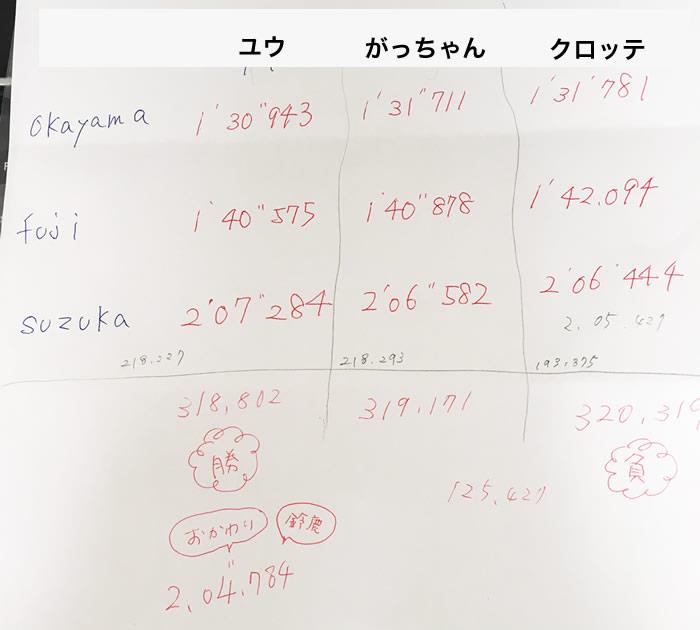 ユウ がっちゃん クロッテ
Okayama 1'30"943 1'31"711 1'31'781
fuji 1'40"575 1'40"878 1'42.094
suzuka 2'07"284 2'06"582 2'06'444
2.05.427
218.227 218.293 193.375
318,802 319,171 320,319
勝 負
125.427
おかわり 鈴鹿
2.04".784